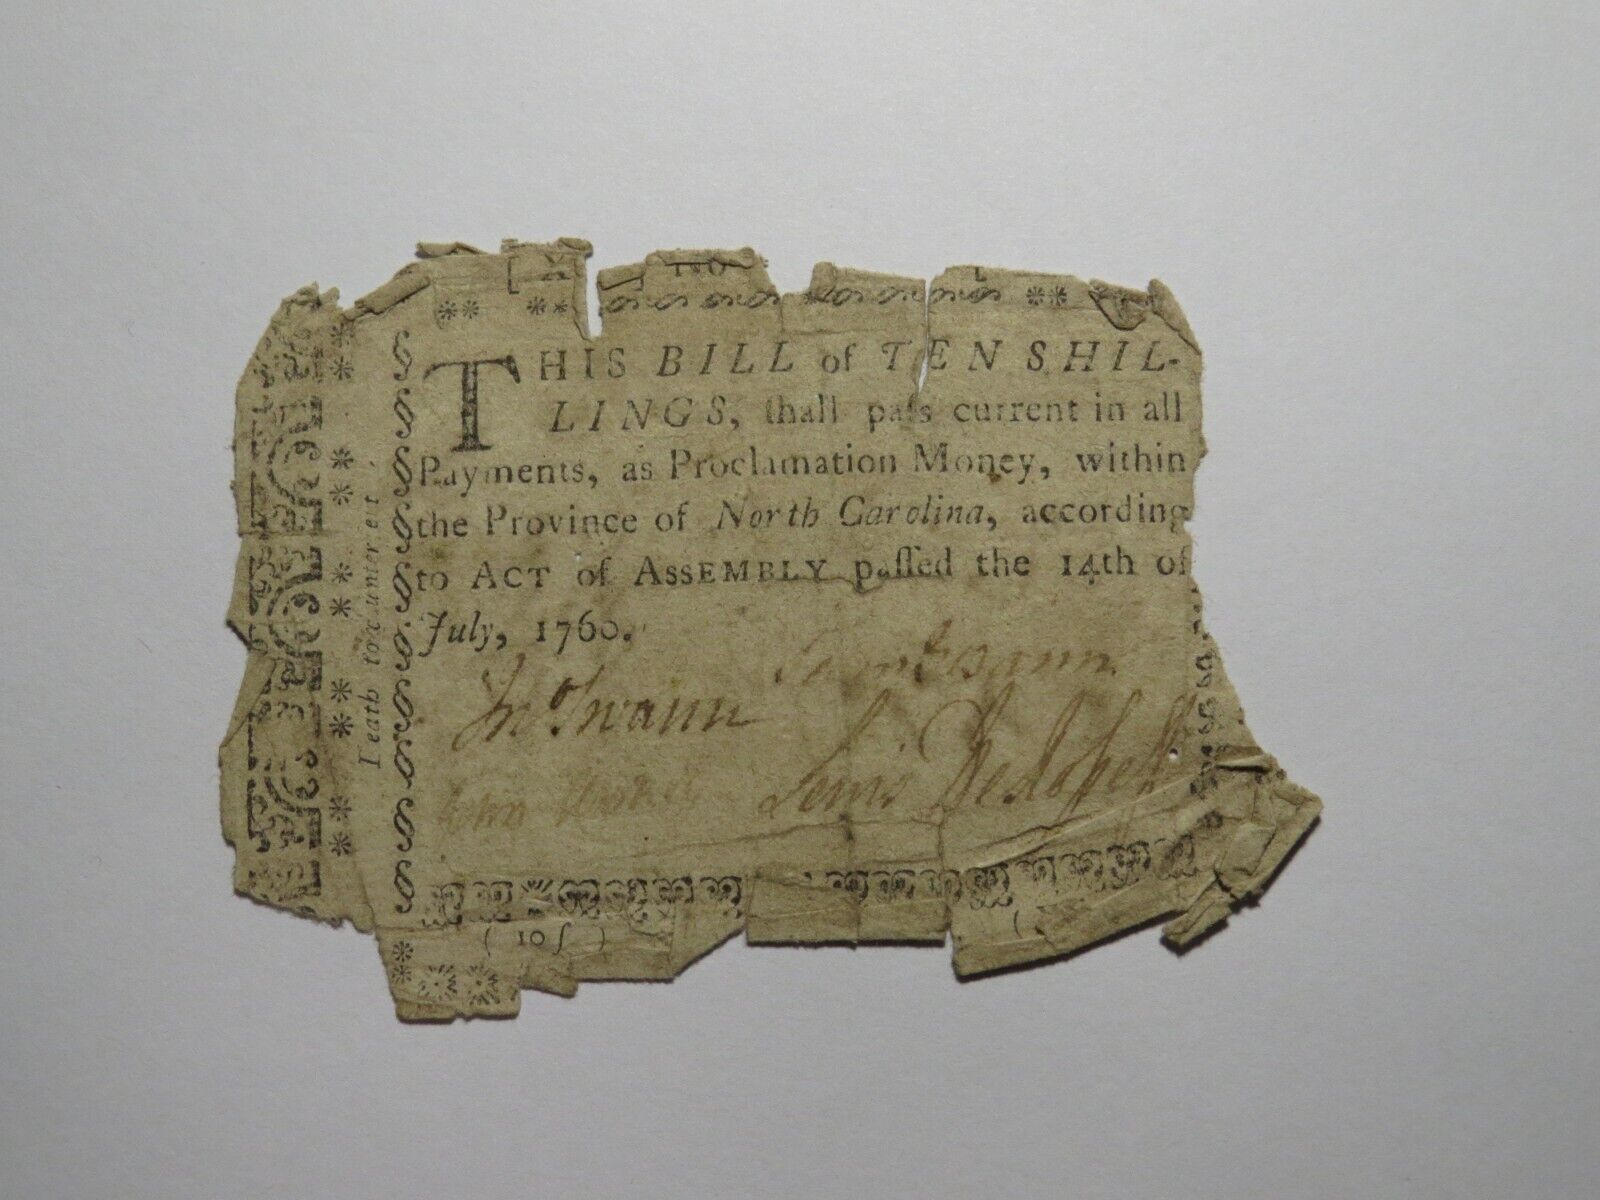 THIS BILL of TEN SHIL-
LINGS, ſhall paſs current in all
Payments, as Proclamation Money, within
the Province of North Carolina, according
to ACT of ASSEMBLY paſſed the 14th of
July, 1760.
Saml Swann
Jno Swann
Lewis DeRoſſett
John
Death to counterfeit
( ſ01 )